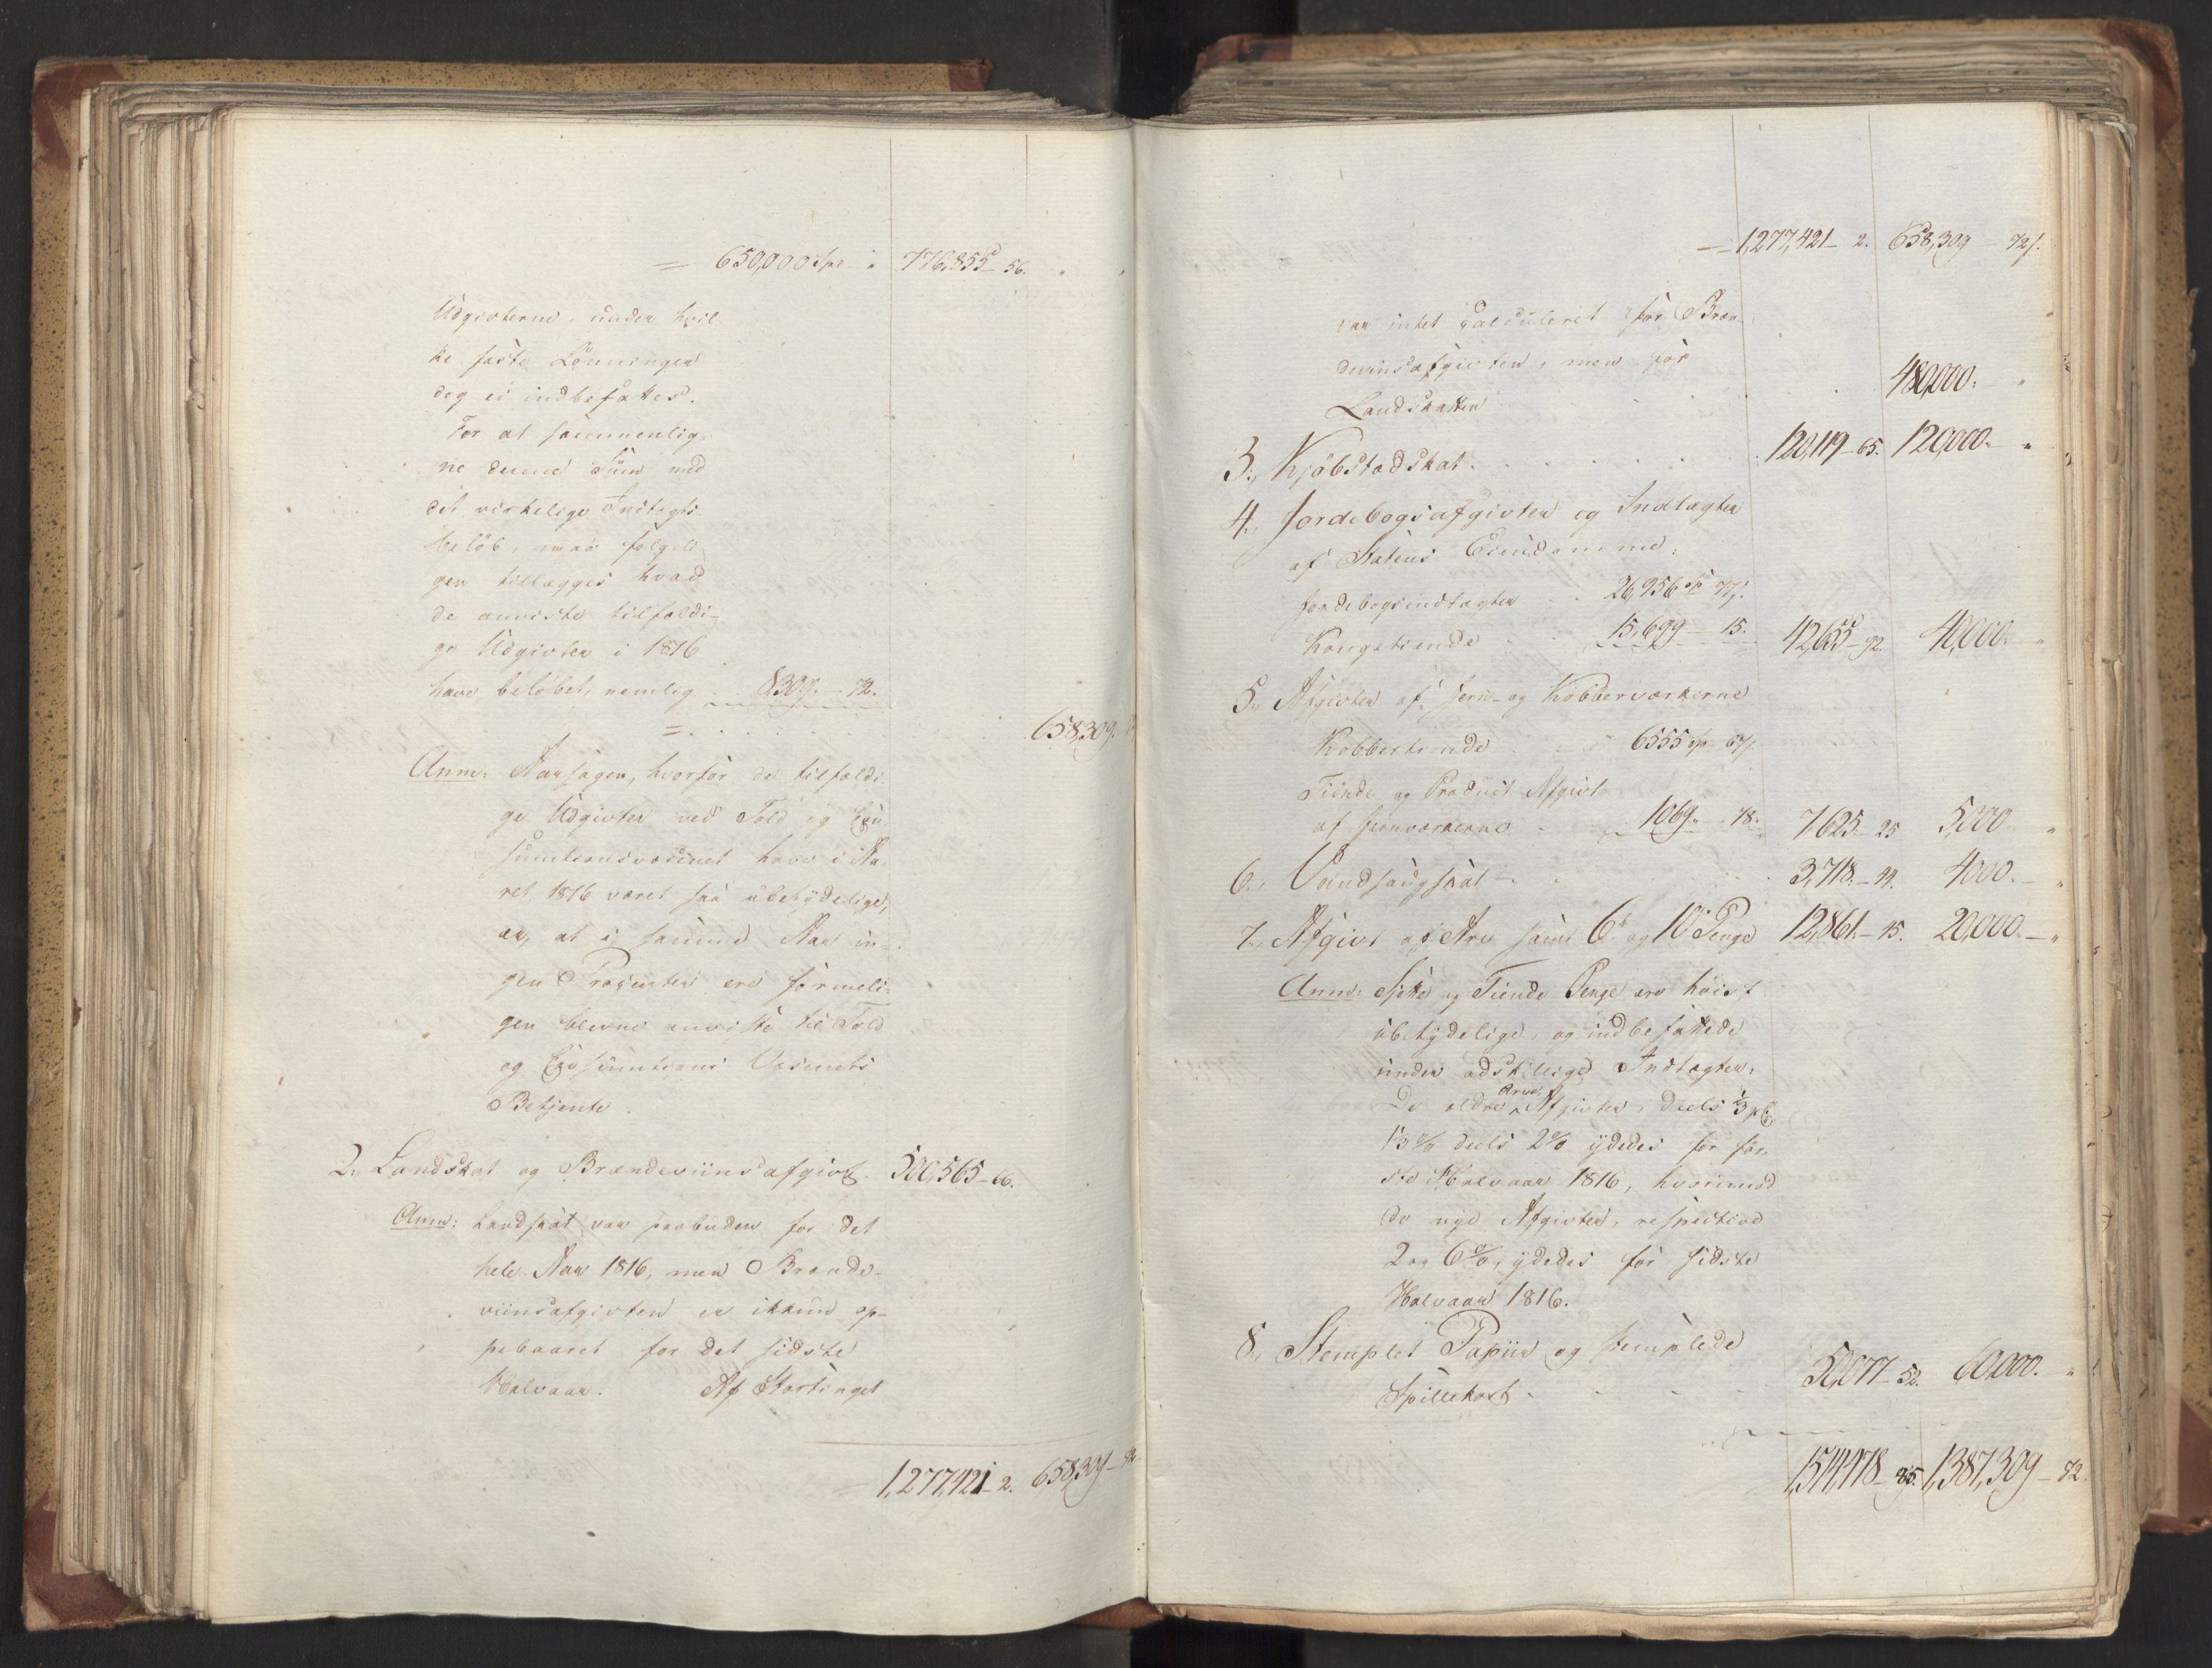 = 650,000 Spd. " 776,855 - 56. " "
Udgivterne, under hvil-
ke faste Lønninger
dog ei indbefattes.
For at sammenlig-
ne denne Sum med
det virkelige Indtægts-
beløb, maa følgeli-
gen tillægges hvad
de anviste tilfældi-
ge Udgivter i 1816
have beløbet, nemlig 8309 - 72.
= 658,309.
Anm: Aarsagen, hvorfor de tilfældi-
ge Udgivter ved Told og Con-
sumtionsvæsenet have i Aa-
ret 1816 været saa ubetydelige,
er, at i samme Aar in-
gen Procenter ere formeli-
gen blevne anviste til Told
og Consumtions Væsenets
Betjente.
2., Landskat og Brændeviinsafgivt. 500,565 - 66.
Anm: Landskat var paabuden for det
hele Aar 1816, men Brænde-
viinsafgivten er ikkun op-
pebaaret for det sidste
Halvaar. Af Stortinget
= 1,277,421 - 2. 658,309 - 72
= 1,277,421 - 2. 658,309 - 72 s.
var intet calculeret for Bræn-
deviinsafgivten, men for
Landskatten 480,000. "
3., Kjøbstadskat. 120,119 - 65. 120,000. "
4., Jordebogsafgivter og Indtægter
af Statens Eiendomme:
Jordebogsindtægter 26,956 Sp 77 s.
Kongetiende 15,699 - 15. 42,655 - 92. 40,000. "
5., Afgivter af Jern- og Kobberværkerne
Kobbertiende 6555 Sp 67 s.
Tiende og Product Afgivt
af Jernværkerne 1069. - 78. 7625 - 25 5,000. "
6., Vandsaugskat 3,718. - 44. 4000. - "
7., Afgivt af Arv samt 6te og 10de Penge 12,861. - 15. 20,000. - "
Anm: Sjette og Tiende Penge ere høist
ubetydelige, og indbefattede
under adskillige Indtægter.
De ældre Arve Afgivter, deels 1/3 pC
1/3 % deels 2 % ydedes for før-
ste Halvaar 1816, hvorimod
de nye Afgivter, respective
2 og 6 %, ydedes for sidste
Halvaar 1816.
8., Stemplet Papiir og stemplede
Spillekort 50,077 - 52. 60,000. "
1,514,478 - 95. 1,387,309 - 72.